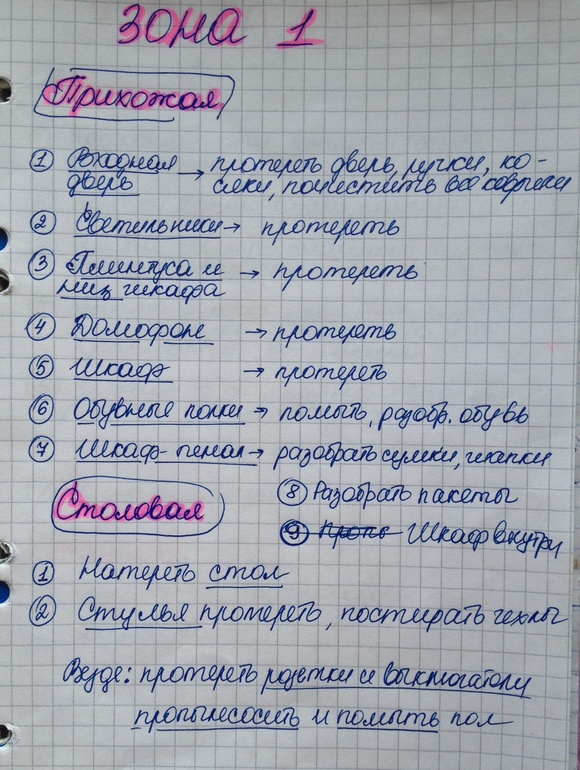 ЗОНА 1
Прихожая
① Входная → протереть дверь, ручки, ко-
дверь сяки, почистить все коврики
② Светильники → протереть
③ Плинтуса и → протереть
низ шкафа
④ Домофон → протереть
⑤ Шкаф → протереть
⑥ Обувные полки → помыть, разобр. обувь
⑦ Шкаф-пенал → разобрать сумки, шапки
⑧ Разобрать пакеты
Столовая
⑨ Шкаф внутри
① Натереть стол
② Стулья протереть, постирать чехлы
Везде: протереть розетки и выключатели
пропылесосить и помыть пол